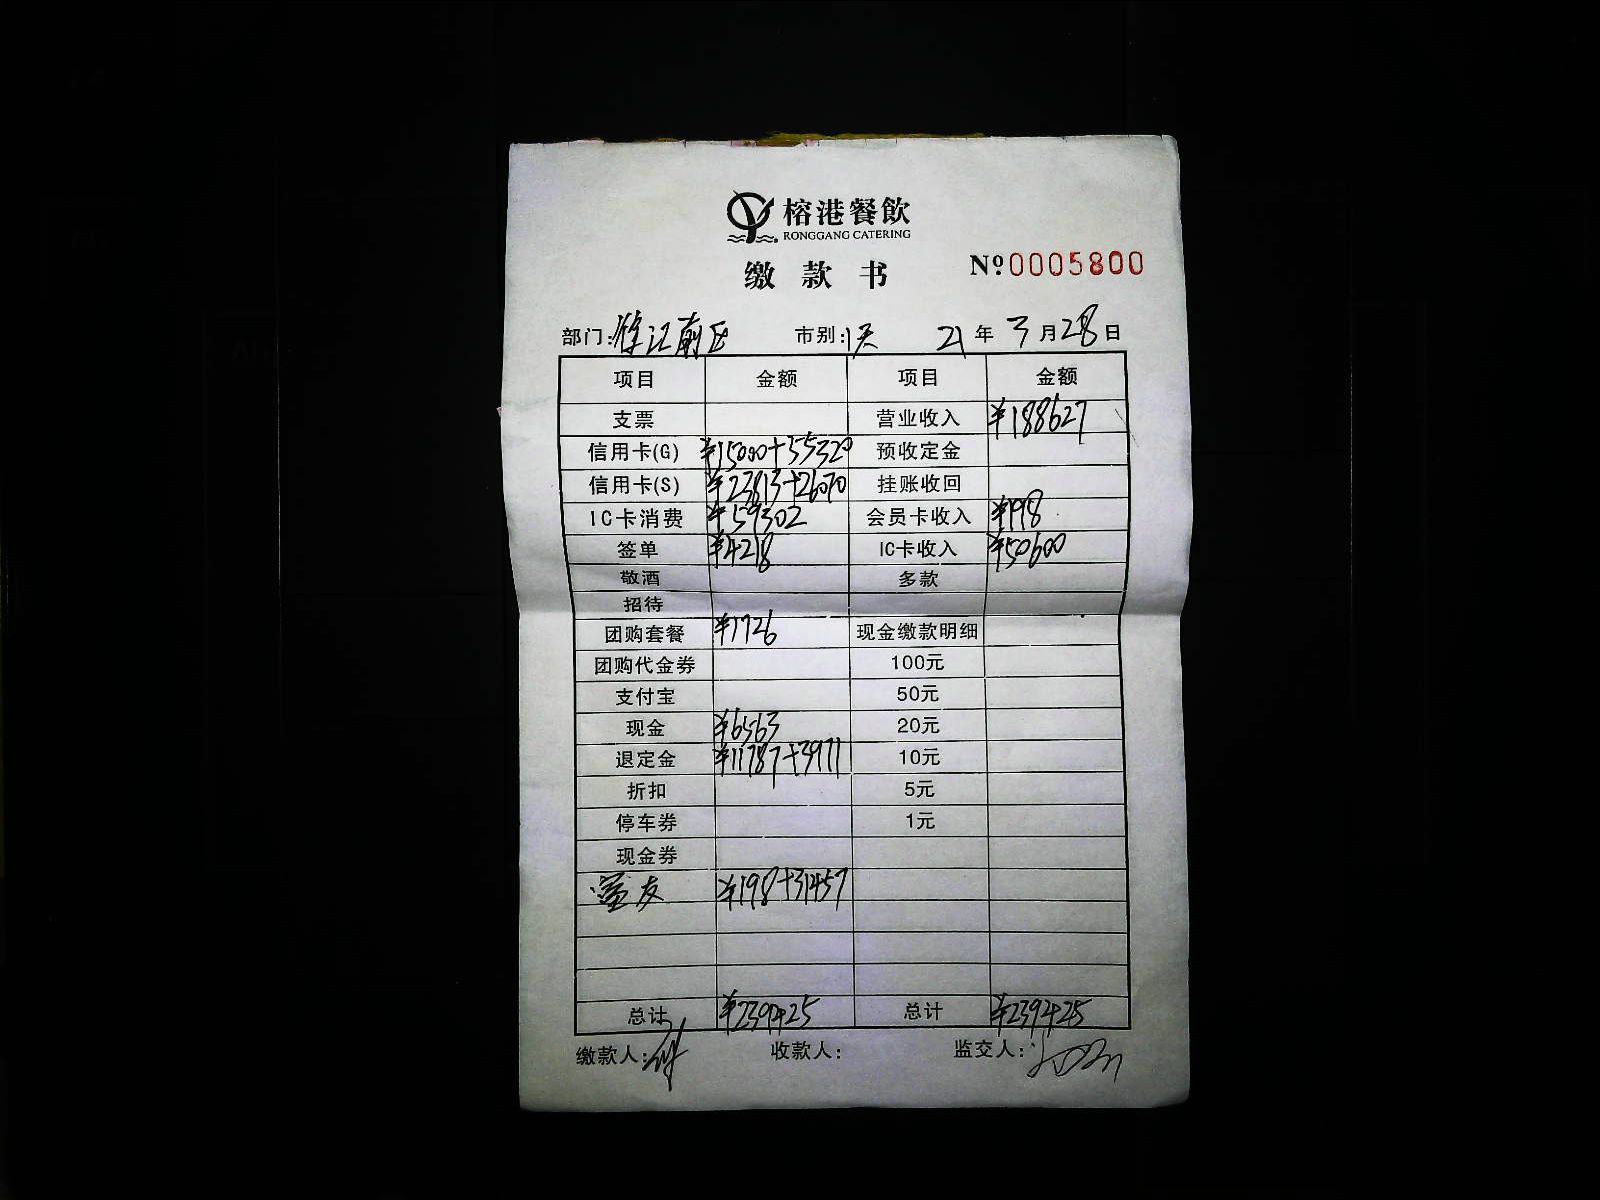 榕港餐飲
RONGGANG CATERING
缴款书
Nº0005800
部门: 江南区 市别: 21年3月28日
项目 金额 项目 金额
支票 营业收入 ¥188627
信用卡(G) ¥15000+55320 预收定金
信用卡(S) ¥23813+26070 挂账收回
IC卡消费 ¥59302 会员卡收入 ¥198
签单 ¥4218 IC卡收入 ¥50600
敬酒 多款
招待
团购套餐 ¥1726 现金缴款明细
团购代金券 100元
支付宝 50元
现金 ¥6563 20元
退定金 ¥11787+3971 10元
折扣 5元
停车券 1元
现金券
¥198+31457
总计 ¥239425 总计 ¥239425
缴款人: 收款人: 监交人: